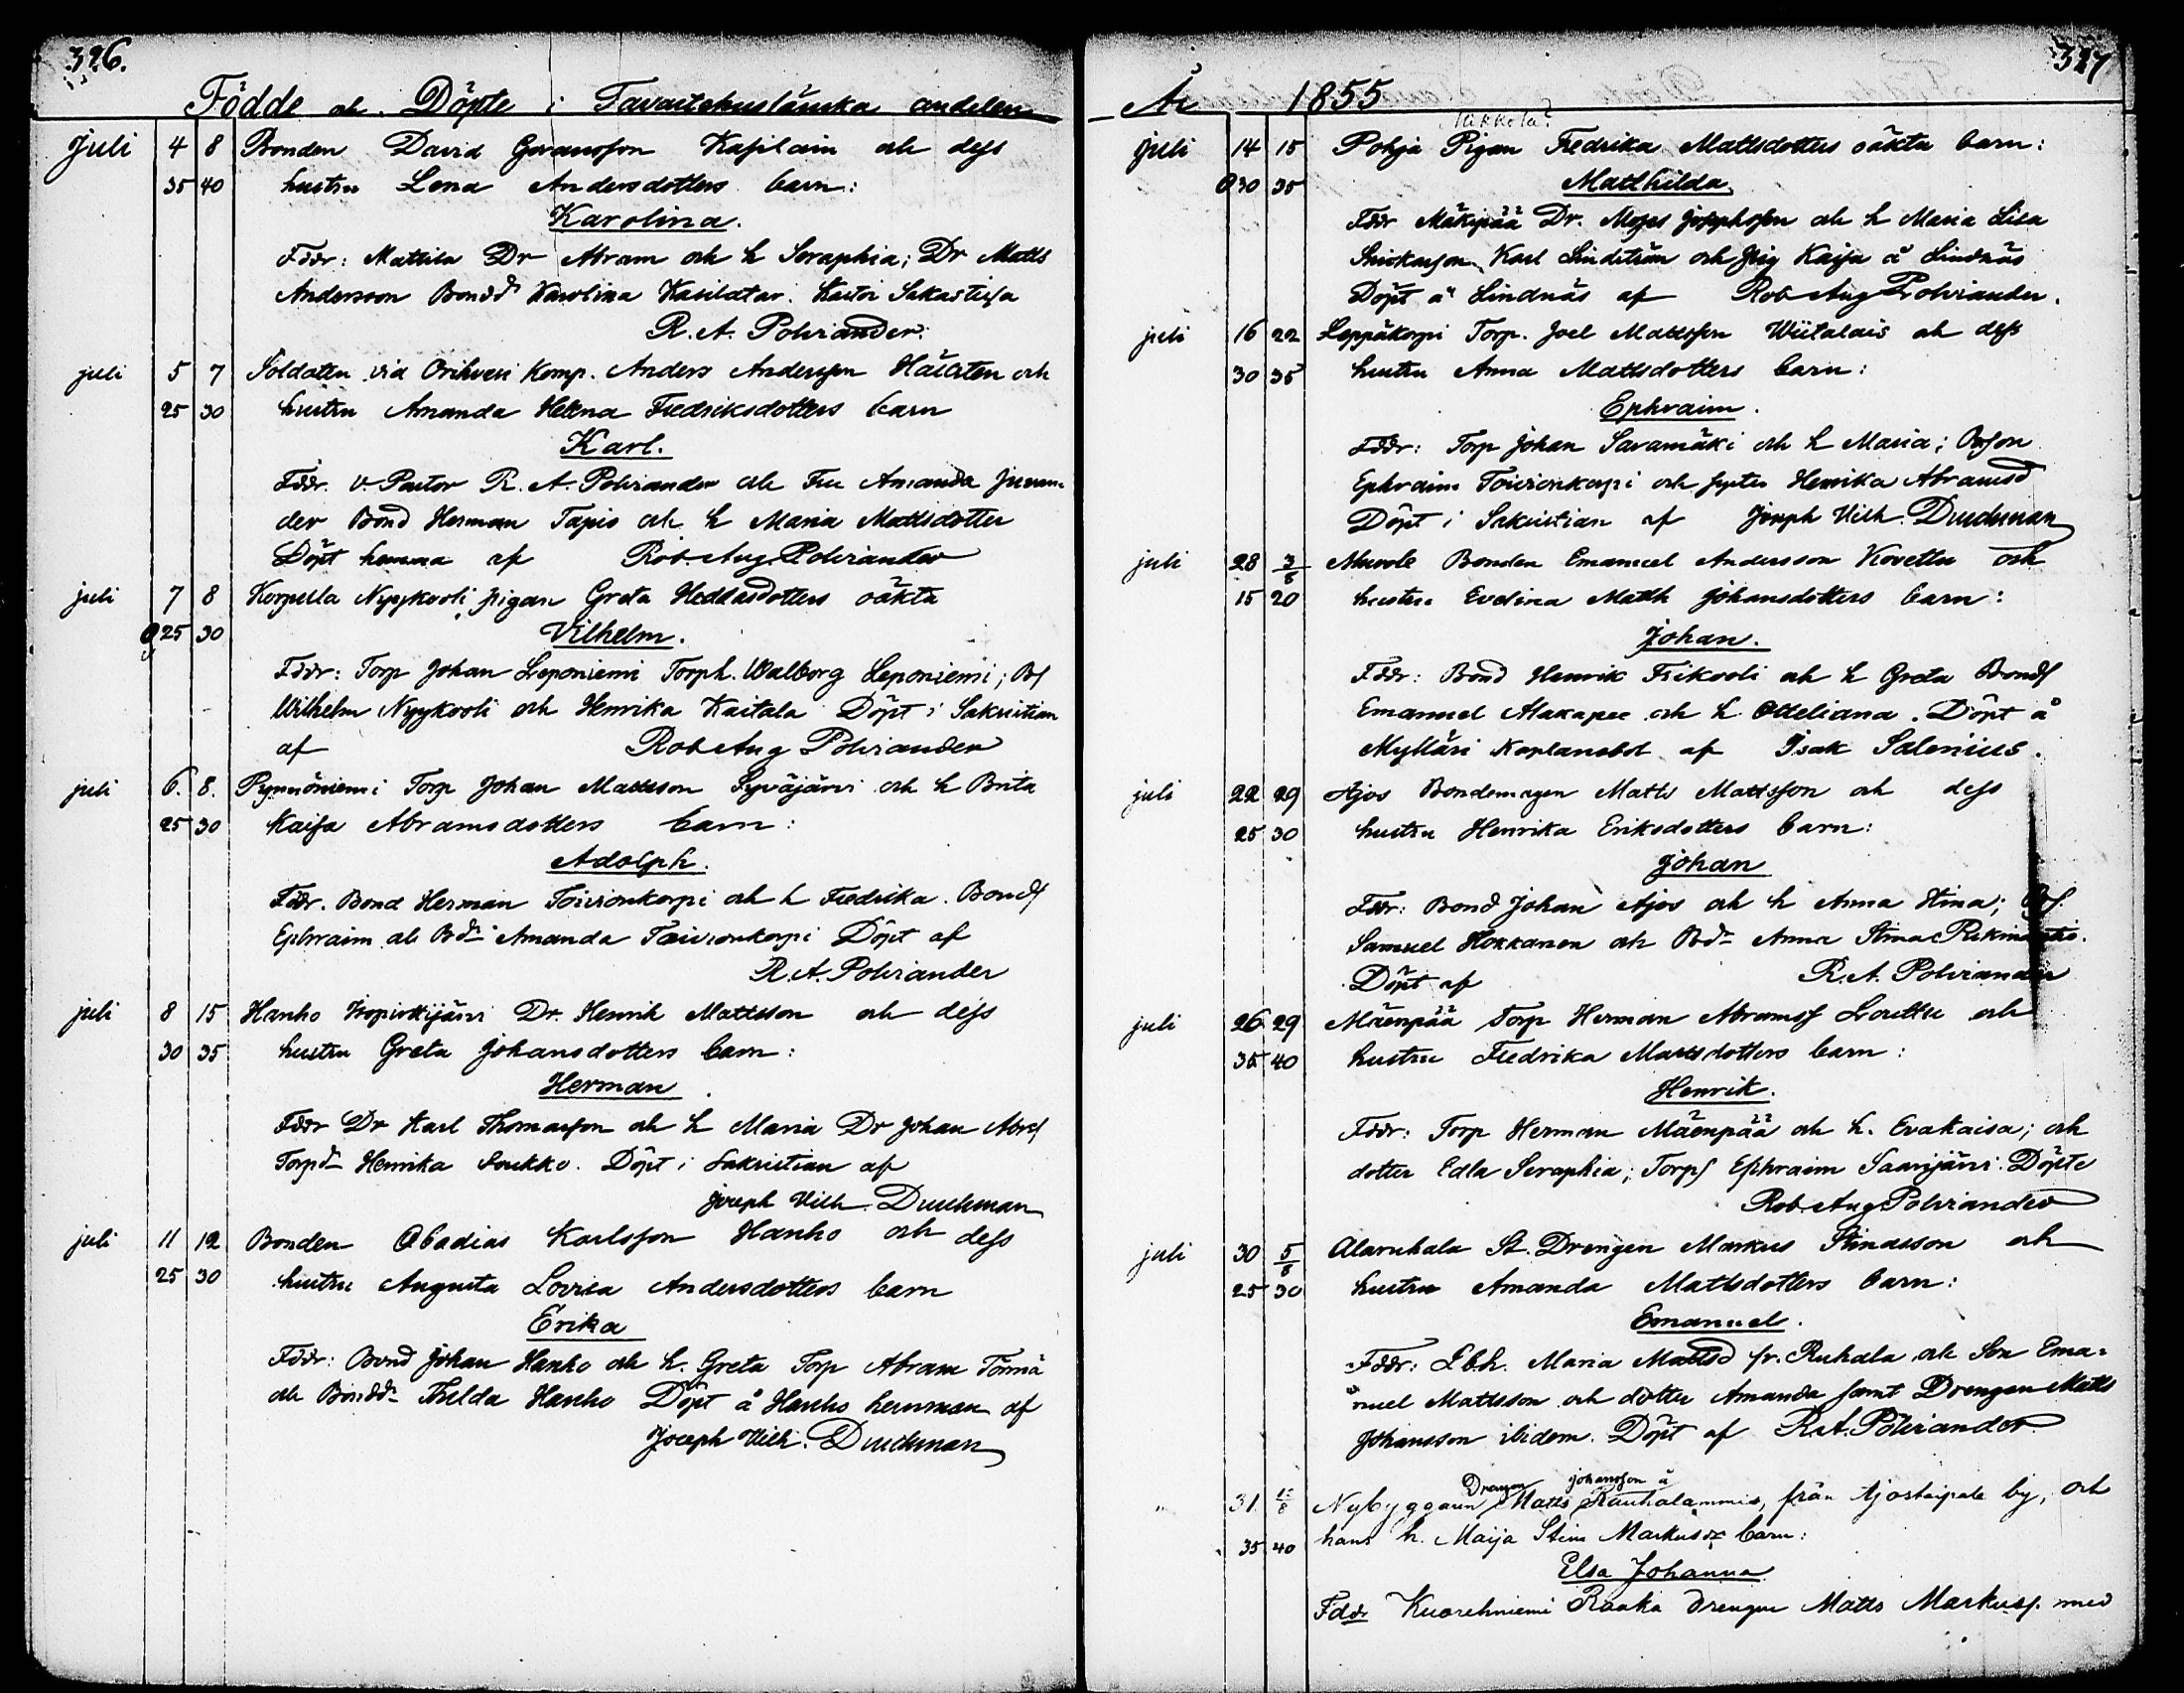 326.
Födde och Döpte i Tavastehuslänska andelen
Juli 4 8 Bonden David Göransson Kasilain och dess
35 40 hustru Lena Andersdotters barn:
Karolina.
Fddr: Mattila Dr Abram och h Seraphia; Dr Matts
Andersson Bondd Karolina Kasilatar.
R. A. Polviander.
juli 5 7 Soldaten vid Orihvesi Komp. Anders Andersson och
25 30 hustru Amanda Helena Fredriksdotters barn
Karl.
Fddr. v. Pastor R. A. Polviander och Fru Amanda
der Bond Herman Tapio och h Maria Mattsdotter
Döpt hemma af Rob. Aug. Polviander
juli 7 8 Korpula Nyykooli pigan Greta oäkta
25 30 Vilhelm.
Fddr: Torp Johan Leponiemi Torph. Walborg Leponiemi; Bs
Wilhelm Nyykooli och Henrika Kaitala Döpt i Sakristian
af Rob Aug Polviander
juli 6. 8. Pynnöniemi Torp Johan Mattsson Syväjärvi och h Brita
25 30 Kaisa Abramsdotters barn:
Adolph.
Fddr. Bond Herman Toivionkorpi och h Fredrika. Bonds
Ephraim och Bdr Amanda Toivionkorpi Döpt af
R. A. Polviander
juli 8 15 Hanho Dr. Henrik Mattsson och dess
30 35 hustru Greta Johansdotters barn:
Herman
Fddr Dr Karl Thomasson och h Maria Dr Johan Abrs
Torpd Henrika Soukko. Döpt i Sakristian af
Joseph Vilh. Duchman
juli 11 12 Bonden Obadias Karlsson Hanho och dess
25 30 hustru Augusta Lovisa Andersdotters barn
Erika
Fddr: Bond Johan Hanho och h. Greta Torp Abram Törmä
och Bondd Thilda Hanho Döpt å Hanho hemman af
Joseph Vilh. Duchman
327
År 1855
Mikkola?
juli 14 15 Pohja Pigan Fredrika Mattsdotters oäkta barn:
30 35 Mathilda
Fddr Mäkipää Dr. Moses Josephsson och h Maria Lisa
Karl Lindström och Pig Kaisa å Lindnäs
Döpt å Lindnäs af Rob Aug Polviander.
juli 16 22 Leppäkorpi Torp. Joel Mattsson Wiitalais och dess
30 35 hustru Anna Mattsdotters barn:
Ephraim.
Fddr: Torp Johan Savamäki och h Maria;
Ephraim Toivionkorpi och syster Henrika Abramsd
Döpt i Sakristian af Joseph Vilh. Duchman
juli 28 3/8 Murole Bonden Emanuel Andersson Kovettu och
15 20 hustru Evelina Math Johansdotters barn:
Johan.
Fddr: Bond Henrik och h Greta Bonds
Emanuel Alakapee och h Otteliana. Döpt å
Mylläri Kaplansbol af Isak Salenius.
juli 22 29 Ajos Bondemagen Matts Mattsson och dess
25 30 hustru Henrika Eriksdotters barn:
Johan
Fddr: Bond Johan Ajos och h Anna Stina; Bs.
Samuel Hokkanen och Bdr Anna Stina
Döpt af R. A. Polviander
juli 26 29 Mäenpää Torp Herman Abramss Louttu och
35 40 hustru Fredrika Mattsdotters barn:
Henrik.
Fddr: Torp Herman Mäenpää och h. Evakaisa; och
dotter Edla Seraphia; Torps Ephraim Saarijärvi. Döpte
Rob. Aug Polviander
juli 30 5/8 Alaruhala St. Drengen Markus Stinasson och
25 30 hustru Amanda Mattsdotters barn:
Emanuel.
Fddr: Ebh. Maria Mattsd fr. Ruhala och Son Ema-
nuel Mattsson och dotter Amanda samt Drengen Matts
Johansson ibidem. Döpt af R. A. Polviander
Drengen johansson å
" 31. Nybyggaren Matts Rauhalammis, från by, och
35 40 hans h. Maija Stina Markusdr barn:
Elsa Johanna
Fddr Kuorehniemi Raaka Drengen Matts Markuss. med